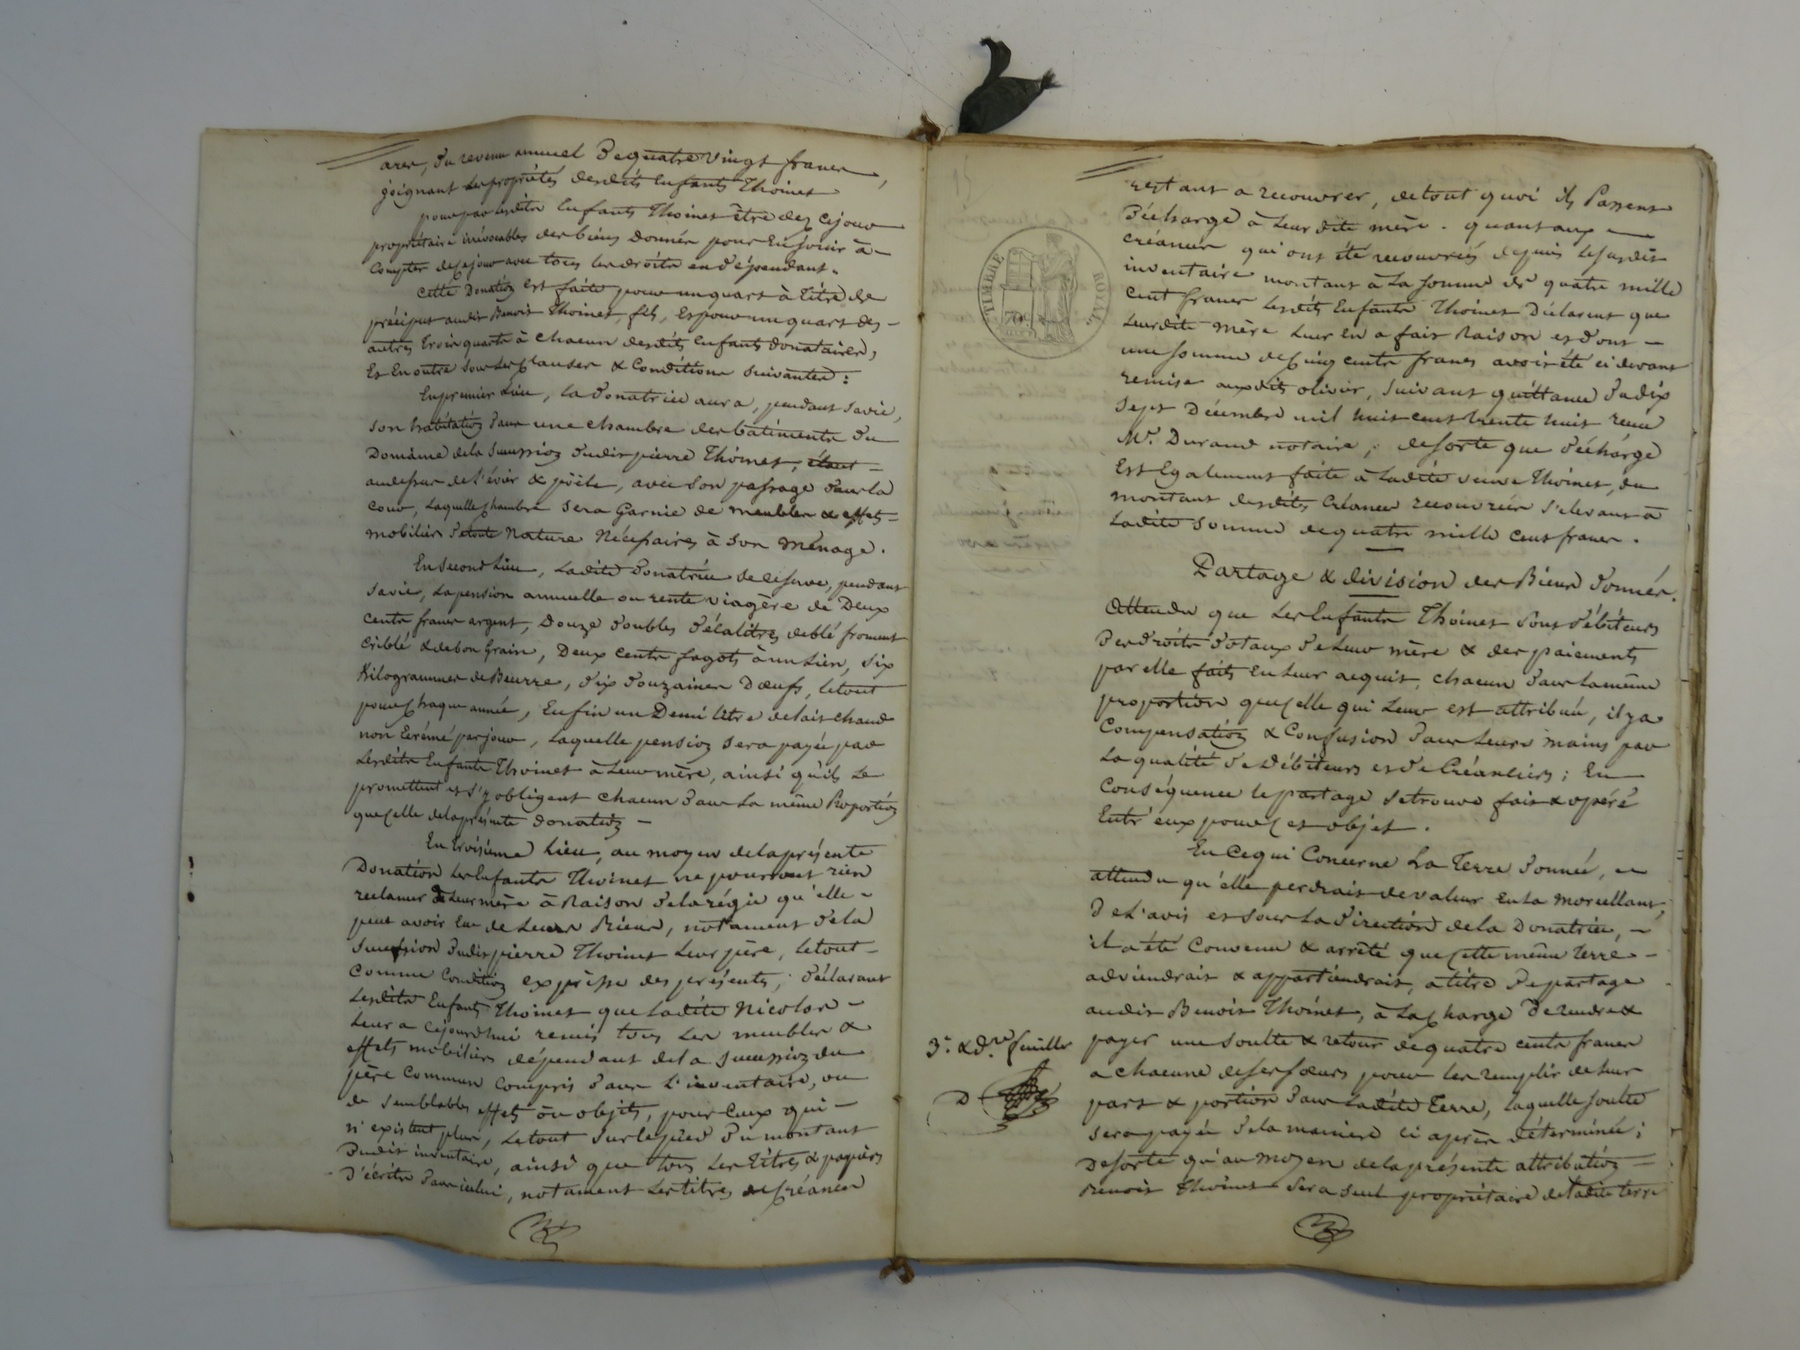 ares, du revenu annuel de quatre vingt francs,
joignant les propriétés desdits Enfants Thoinet
pour par lesdits Enfants Thoinet être dez cejour
propriétaires irrévocables des biens donnés pour en jouir à-
Compter de cejour avec tous les droits en dépendant.
Cette Donation est faite pour un quart à titre de
préciput audit Benoit Thoinet fils, Et pour un quart des-
autres trois quarts à chacun desdits Enfants donataires,
Et En outre sous les Clauses & Conditions suivantes:
En premier Lieu, la donatrice aura, pendant savie,
son habitation dans une chambre des batiments du
Domaine dela succession dudit pierre Thoinet, étant-
audessus de l'évier & poële, avec son passage dans la
cour, Laquelle chambre sera Garnie de meubles & effets-
mobiliers detoute Nature Nécessaires à son ménage.
En second Lieu, Ladite donatrice se réserve, pendant
savie, La pension annuelle ou rente viagère de Deux
cents francs argent, Douze doubles décalitres de blé froment
Criblé & debon Grain, Deux cents fagots à un Lien, six
Kilogrammes de Beurre, dix douzaines D'œufs, letout
pour chaque année, Enfin un Demi litre delait chaud
non Ecrémé par jour, Laquelle pension sera payée par
Lesdits Enfants Thoinet à Leur mère, ainsi qu'ils Le
promettent et s'y obligent chacun dans La même Proportion
que celle delaprésente donation -
En troisième Lieu, au moyen delaprésente
Donation Les Enfants Thoinet ne pourront rien
reclamer de Leur mère à Raison delarégie qu'elle-
peut avoir Eue de Leurs Biens, notament dela
succession dudit pierre Thoinet Leur père, letout-
Comme Condition expresse des présentes; déclarant
Lesdits Enfants Thoinet que Ladite Nicolas-
Leur a cejourdhui remis tous Les meubles &
effets mobiliers dépendant dela succession du
père Commun Compris dans L'inventaire, ou
de semblables effets ou objets, pour Ceux qui-
n'existent plus, Letout sur le pied du montant
Dudit inventaire, ainsi que tous Les titres & papiers
D'écrits dans icelui, notament Les titres de Créances
restant a recouvrer, detout quoi ils Passent
décharge à Leur dite mère. quant aux-
créances qui ont été recouvrées depuis lesusdit
inventaire montant à La somme de quatre mille
cent francs Lesdits Enfants Thoinet Déclarent que
Leurdite mère Leur En a fait Raison et dont-
une somme de Cinq cents francs avoit été ci devant
remise auxdits olivier, suivant quittance du dix
sept Décembre mil huit cent trente huit reçue
Me. Durand notaire; desorte que décharge
Est Egalement faite à Ladite veuve Thoinet, du
montant desdites Créances recouvrées s'élevant à
Ladite somme de quatre mille cent francs.
Partage & division des Biens donnés.
Attendu que Les Enfants Thoinet sont débiteurs
des droits dotaux de Leur mère & des paiements
par elle faits En Leur acquit, chacun dans La même
proportion que celle qui Leur est attribuée, il y a
Compensation & Confusion dans Leurs mains par
La qualité de Débiteurs et de Créanciers; En
Conséquence le partage se trouve fait & opéré
Entr'eux pour cet objet.
En Cequi Concerne La Terre donnée, -
attendu qu'elle perdrait devaleur En la morcellant,
De L'avis et sous La direction de la Donatrice, -
il a été Convenu & arrêté que cette même terre-
adviendrait & appartiendrait, a titre de partage
audit Benoit Thoinet, à La charge de rendre &
payer une soulte & retour de quatre cents francs
a chacune deses sœurs pour Les remplir de Leur
part & portion dans Ladite Terre, Laquelle soulte
sera payée de la maniere ci après déterminée;
Desorte qu'au moyen delaprésente attribution-
Benoit Thoinet sera seul propriétaire deladite terre
TIMBRE ROYAL
3e. & dre. feuille
D